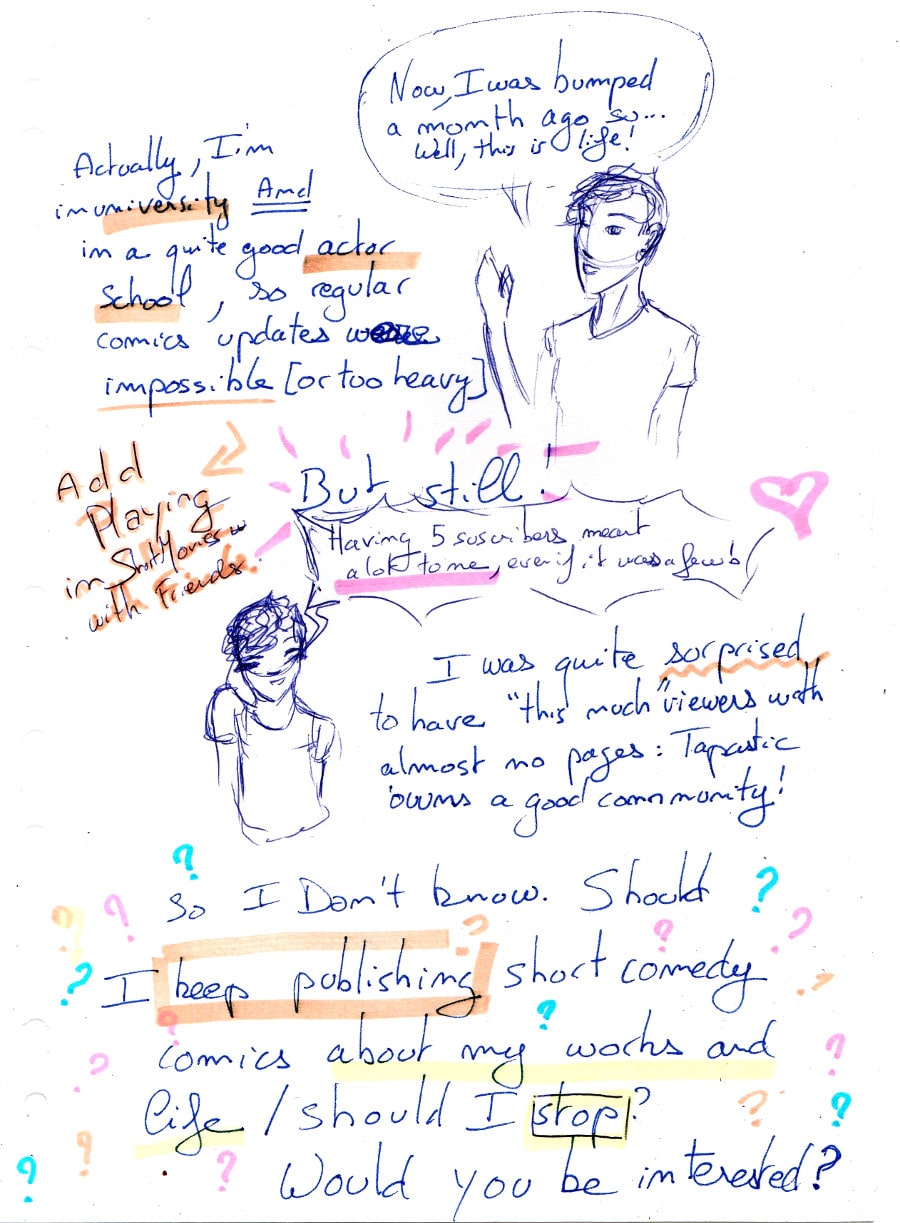 Now, I was bumped
a month ago so...
Well, this is life!
Actually, I'm
in university And
in a quite good actor
school, so regular
comics updates were
impossible [or too heavy]
Add
Playing
in Short Movies
with Friends.
But still!
Having 5 suscribers meant
a lot to me, even if it was a few!
I was quite surprised
to have "this much" viewers with
almost no pages: Tapastic
owns a good community!
So I Don't know. Should
I keep publishing short comedy
comics about my works and
life / should I stop?
Would you be interested?